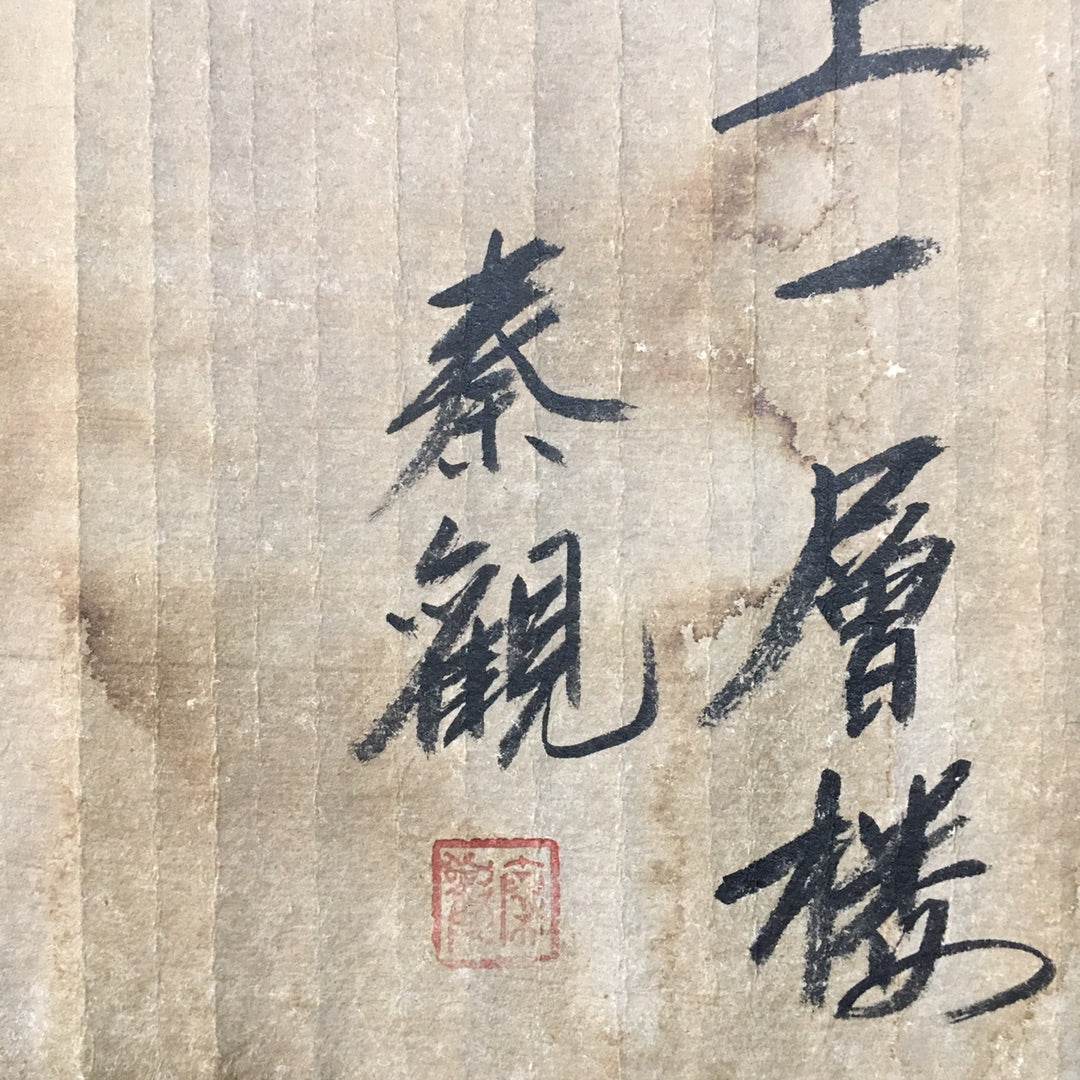 上一層樓
秦觀